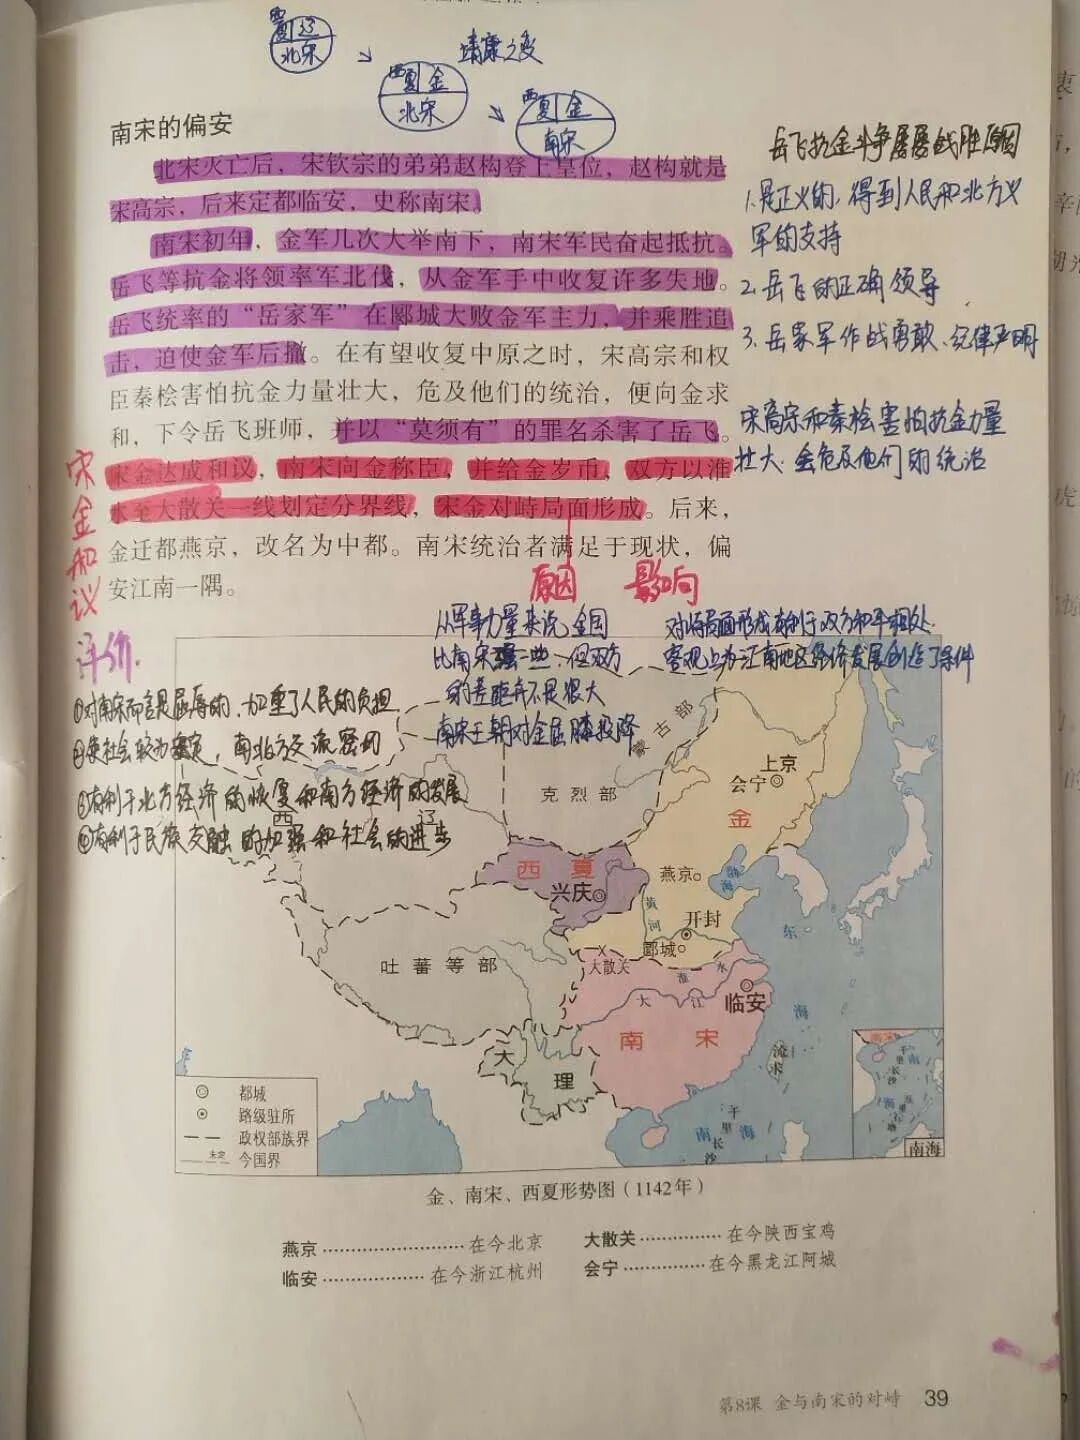 西夏 辽
北宋
靖康之变
西夏 金
北宋
西夏 金
南宋
南宋的偏安
北宋灭亡后，宋钦宗的弟弟赵构登上皇位，赵构就是
宋高宗，后来定都临安，史称南宋。
南宋初年，金军几次大举南下，南宋军民奋起抵抗。
岳飞等抗金将领率军北伐，从金军手中收复许多失地。
岳飞统率的“岳家军”在郾城大败金军主力，并乘胜追
击，迫使金军后撤。在有望收复中原之时，宋高宗和权
臣秦桧害怕抗金力量壮大，危及他们的统治，便向金求
和，下令岳飞班师，并以“莫须有”的罪名杀害了岳飞。
宋金达成和议，南宋向金称臣，并给金岁币，双方以淮
水至大散关一线划定分界线，宋金对峙局面形成。后来，
金迁都燕京，改名为中都。南宋统治者满足于现状，偏
安江南一隅。
岳飞抗金斗争屡屡战胜原因
1.是正义的，得到人民和北方义
军的支持
2.岳飞的正确领导
3.岳家军作战勇敢、纪律严明
宋高宗和秦桧害怕抗金力量
壮大，会危及他们的统治
宋金和议
原因
影响
从军事力量来说，金国
比南宋强一些，但双方
的差距并不是很大
南宋王朝对金屈膝投降
对峙局面形成有利于双方和平相处
客观上为江南地区经济发展创造了条件
评价
①对南宋而言是屈辱的，加重了人民的负担
②使社会较为安定，南北方交流密切
③有利于北方经济的恢复和南方经济的发展
④有利于民族交融的加强和社会的进步
西
辽
蒙古部
克烈部
上京
会宁
金
西夏
兴庆
燕京
渤海
黄河
开封
郾城
大散关
淮水
吐蕃等部
大江
临安
南宋
大理
东海
流求
南海
千里长沙
南海
千里长沙
南海
都城
路级驻所
政权部族界
未定
今国界
金、南宋、西夏形势图（1142年）
燕京……………………在今北京
大散关……………在今陕西宝鸡
临安………………在今浙江杭州
会宁……………在今黑龙江阿城
第8课 金与南宋的对峙 39